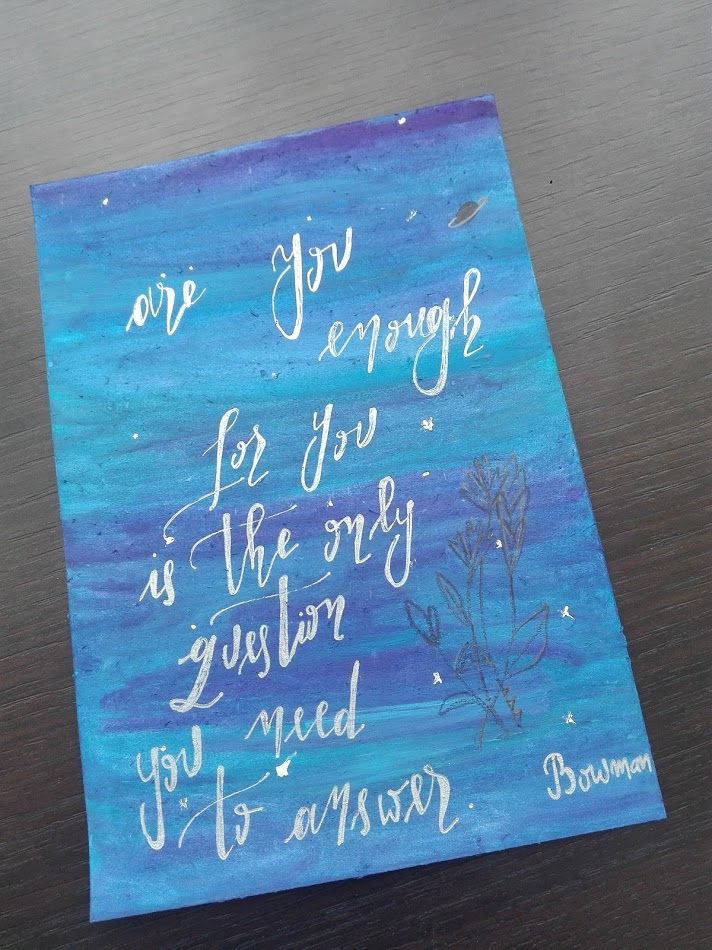 are you
enough
for you
is the only
question
you need
to answer.
Bowman